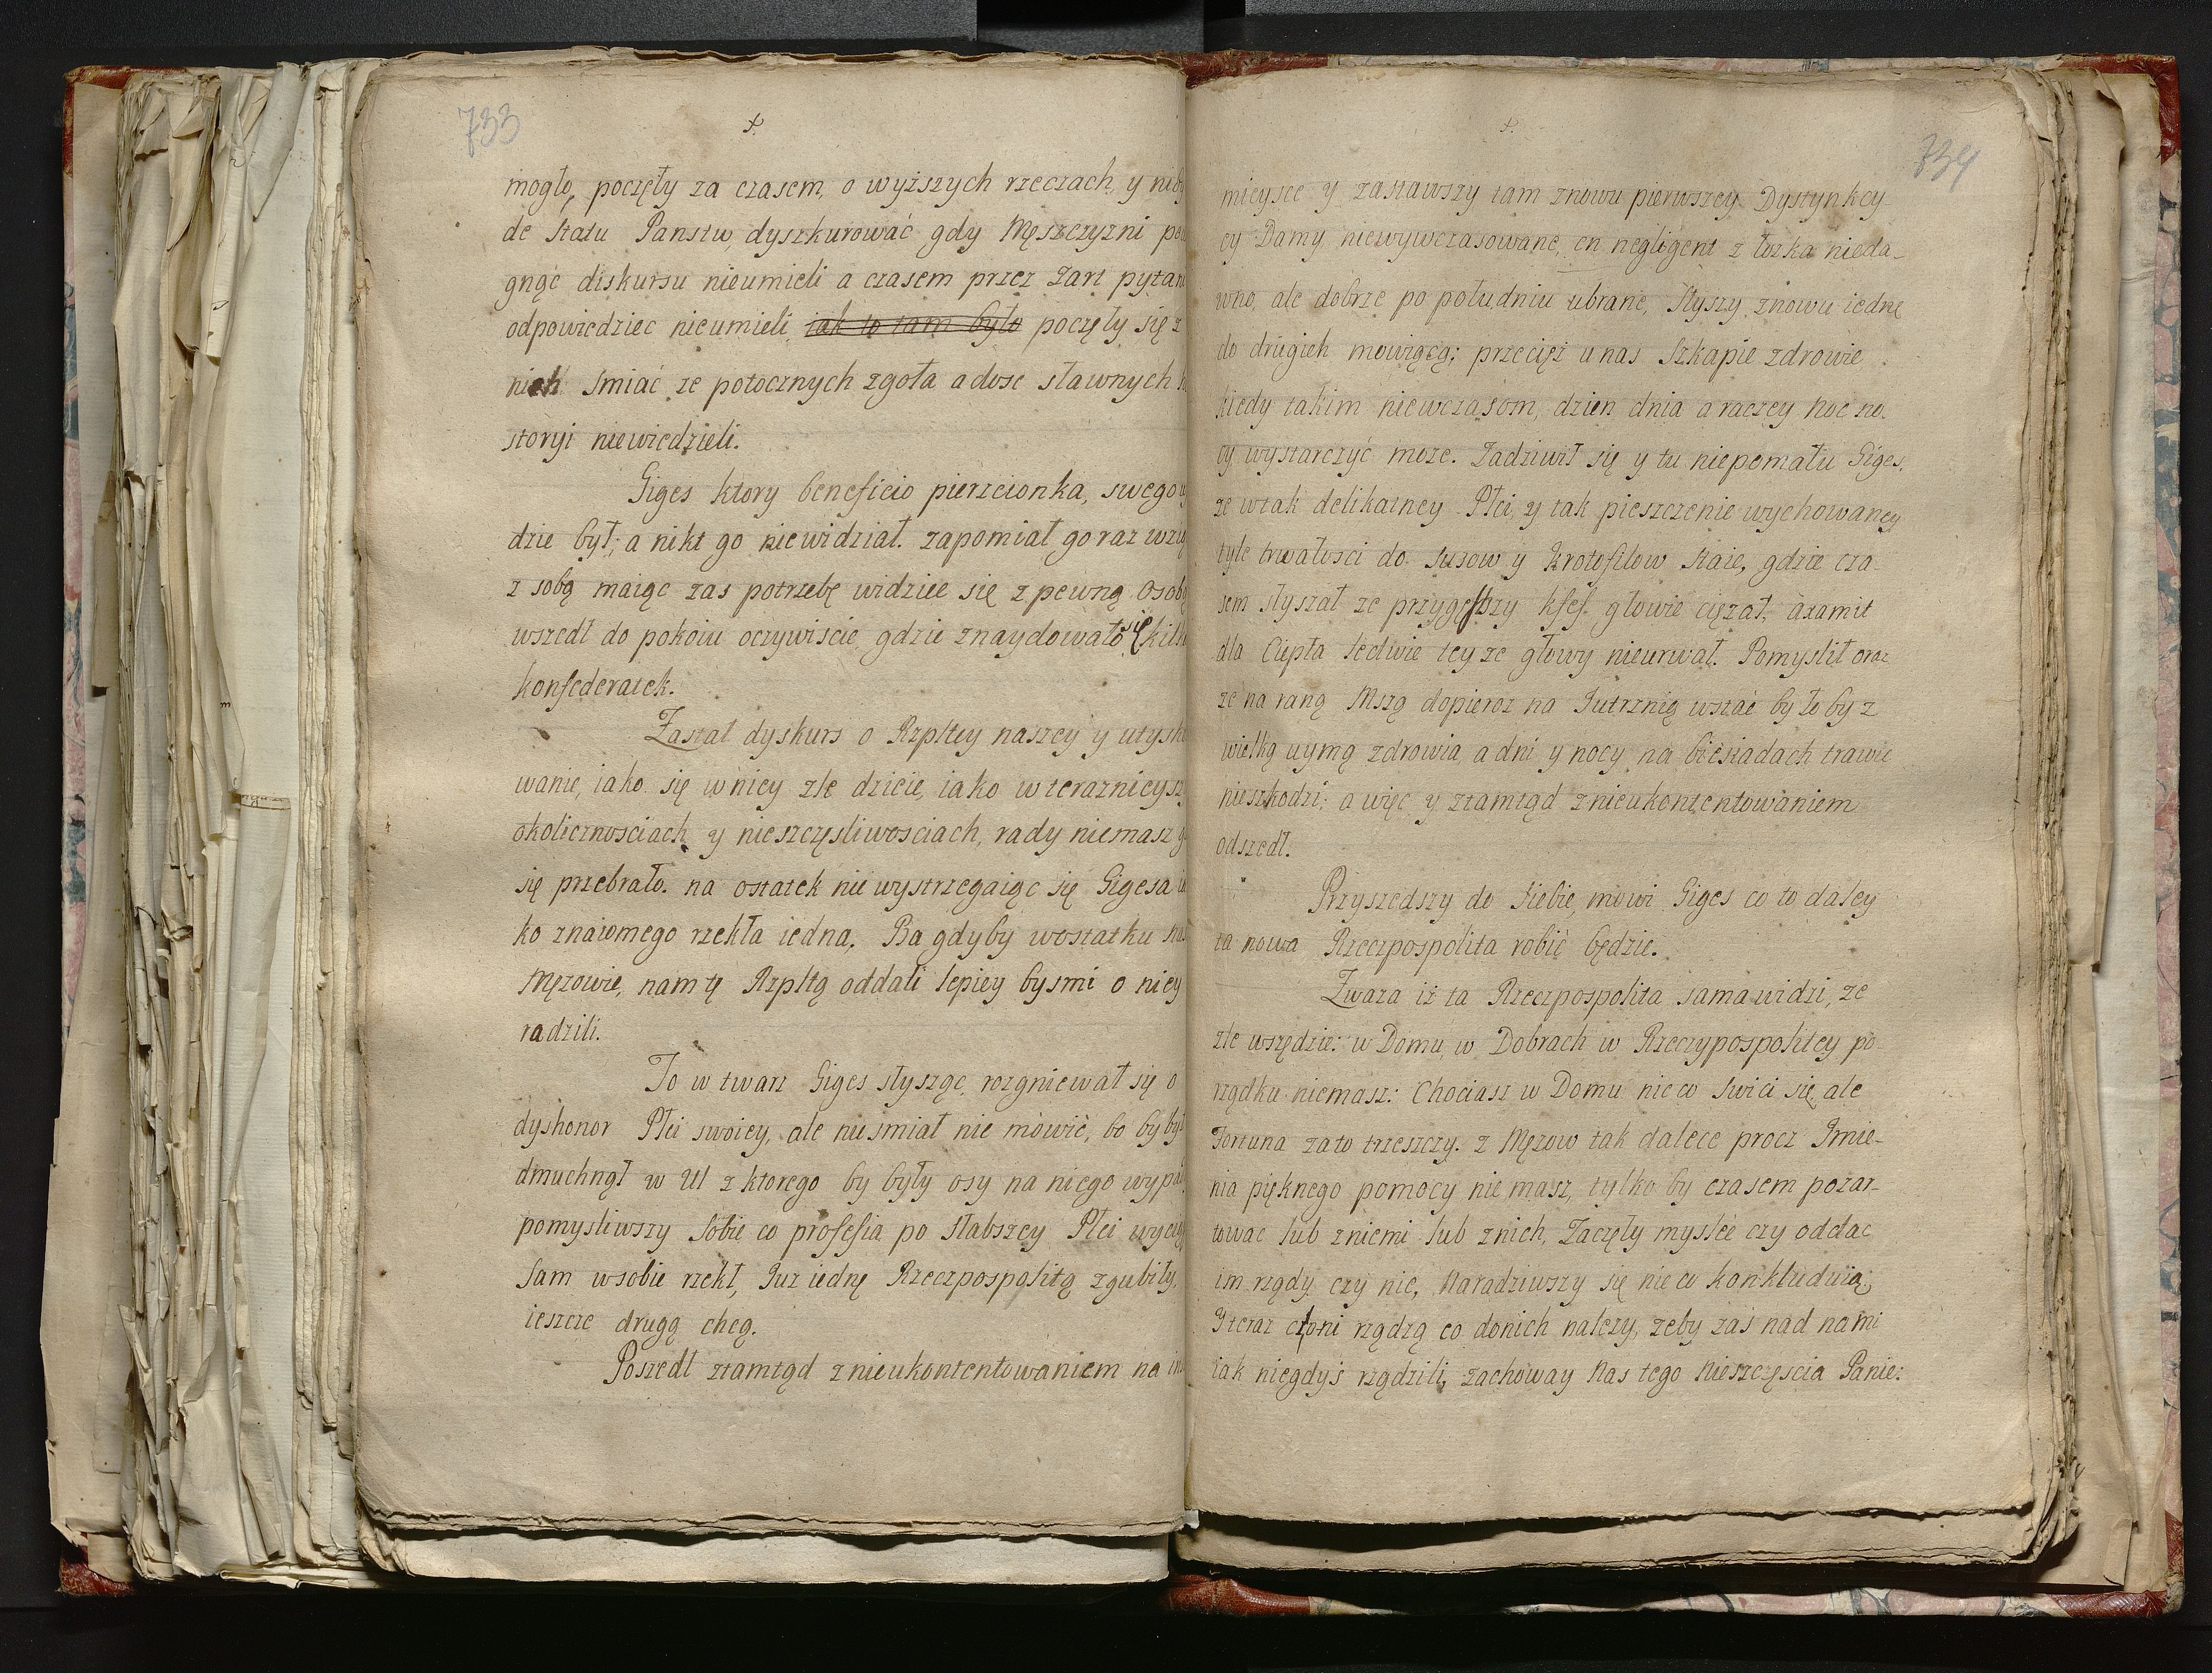 733
mogło, poczęły za czasem, o wyższych rzeczach, y
de Statu Panstw, dyszkurować gdy Męszczyzni
gnąć diskursu nieumieli a czasem przez Zart
odpowiedziec nieumieli, iak to tam było poczęły się z
nich smiać, ze potocznych zgoła a dosc sławnych
storyi niewiedzieli.
Giges ktory beneficio pierzcionka, swego
dzie był, a nikt go niewidział. zapomiał go raz
z sobą maiąc zas potrzebę widziec się z pewną
wszedł do pokoiu oczywiscie gdzie znaydowało się
konfederatek.
Zastał dyskurs o Rzpltey naszey y
wanie, iako się w niey zle dzieie, iako w
okolicznosciach y nieszczęsliwosciach, rady niemasz
się przebrało. na ostatek nie wystrzegaiąc się Gigesa
ko znaiomego rzekła iedna, Ba gdyby wostatku
Męzowie, nam tę Rzpltą oddali lepiey bysmi o niey
radzili.
To w twarz Giges słysząc, rozgniewał się o
dyshonor Płci swoiey, ale nie smiał nic mówić, bo by
dmuchnął w Ul z ktorego by były osy na niego
pomysliwszy sobie co profesia po słabszey Płci
Sam wsobie rzekł, Juz iednę Rzeczpospolitą zgubiły,
ieszcze drugą chcą.
Poszedł ztamtąd z nieukontentowaniem na
734
mieysce y zastawszy tam znowu pierwszey Dystynkcy
cy Damy niewywczasowane, en negligent z łozka nieda-
wno, ale dobrze po południu ubrane, słyszy znowu iednę
do drugieh mowiącą; przecięż u nas Szkapie zdrowie
kiedy takim niewczasom, dzien dnia a raczey noc no.
cy wystarczyć moze. Zadziwił się y tu niepomału Giges,
ze wtak delikatney Płci, y tak pieszczenie wychowaney
tyle trwałosci do susow y krotofilow staie, gdzie cza-
sem słyszał ze głowie cięzał, axamit
dla Ciepła ledwie tey ze głowy nieurwał. Pomyslił oraz
ze na raną Mszą dopieroz na Jutrznią wstać było by z
wielką uymą zdrowia, a dni y nocy na biesiadach trawić
nieszkodzi; a więc y ztamtąd z nieukontentowaniem
odszedł.
Przyszedszy do siebie, mowi Giges co to daley
ta nowa Rzeczpospolita robić będzie.
Zwaza iż ta Rzeczpospolita sama widzi, ze
zle wszędzie: w Domu w Dobrach w Rzeczypospolitey po-
rządku niemasz: Chociasz w Domu nieco swici się, ale
Fortuna zato trzeszczy. z Męzow tak dalece procz Imie-
nia pięknego pomocy nie masz, tylko by czasem pozar-
towac lub zniemi lub znich, Zaczęły mysleć czy oddac
im rządy czy nie, Naradziwszy się nieco konkluduią;
I teraz oni rządzą co donich nalezy, zeby zaś nad nami
iak niegdyś rządzili, zachoway Nas tego Nieszczęscia Panie: